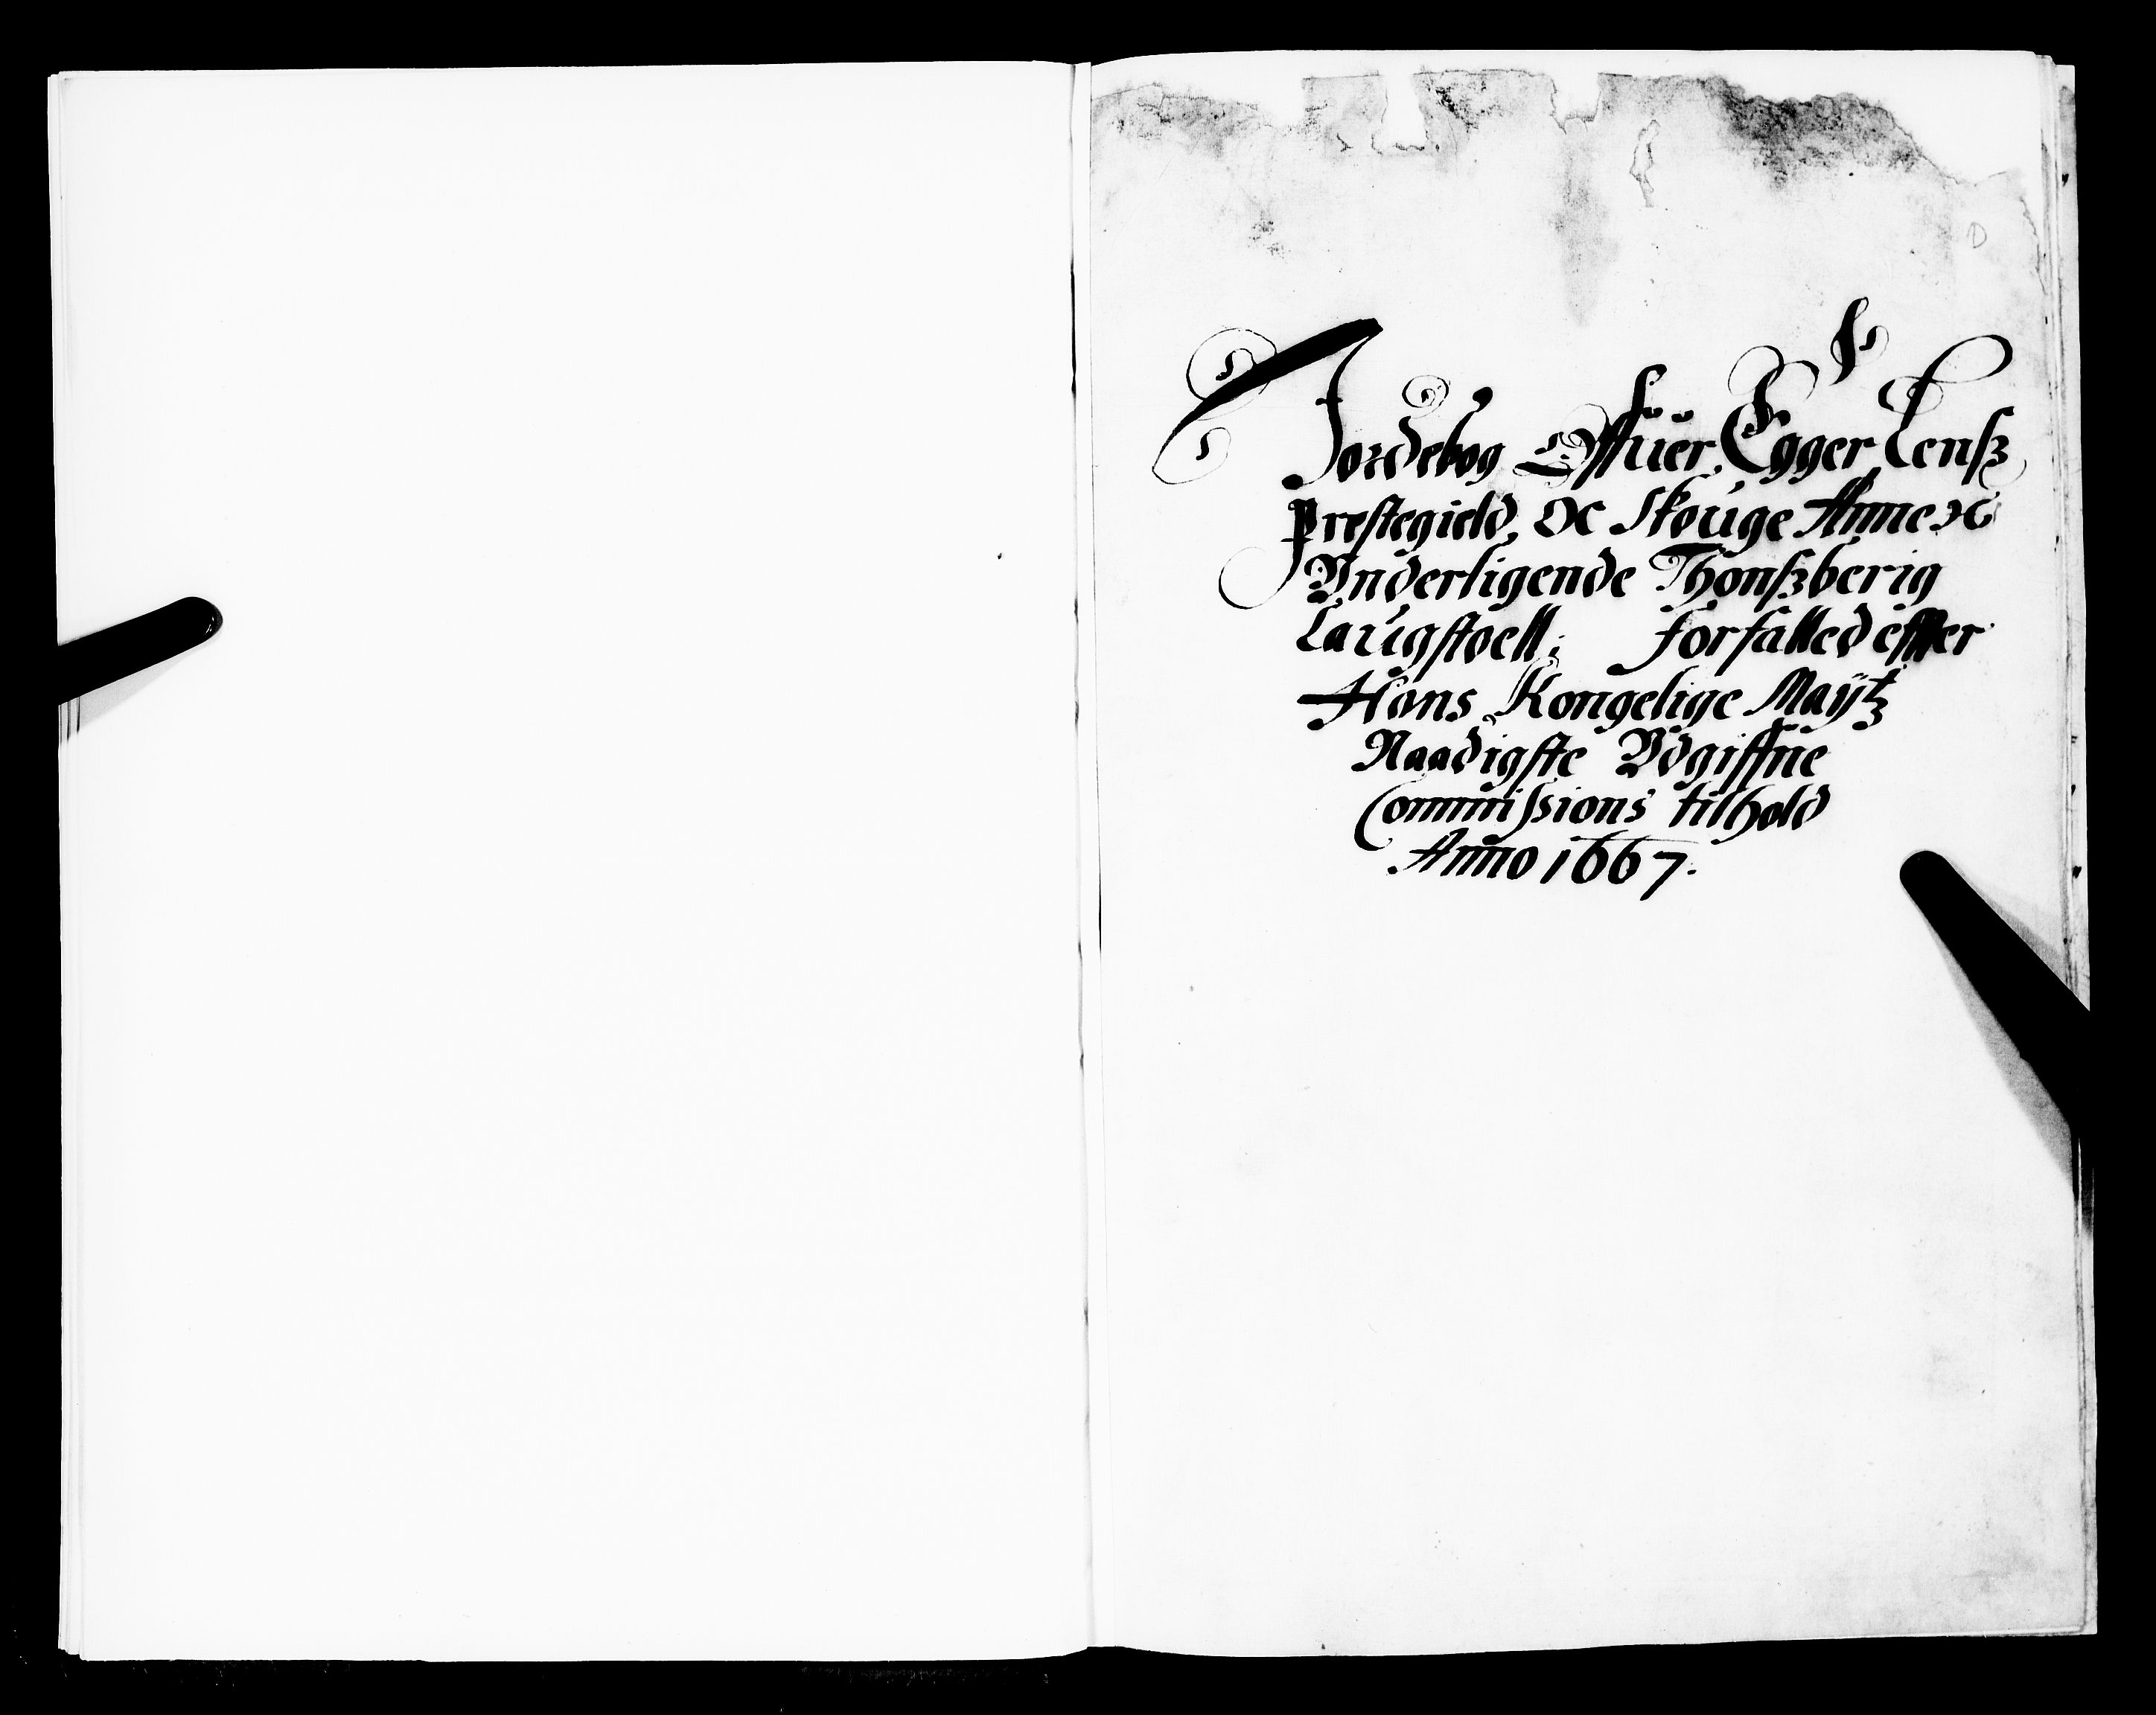 Jordebog Offuer Egger Lensz
Prestegield, Oc Skouge Annex
Vnderligende Thonszberig
Laugstoell; forfatted effter
Hans Kongelige Maÿtz
Naadigste Vdgiffne
Commissions tilhold
Anno 1667.